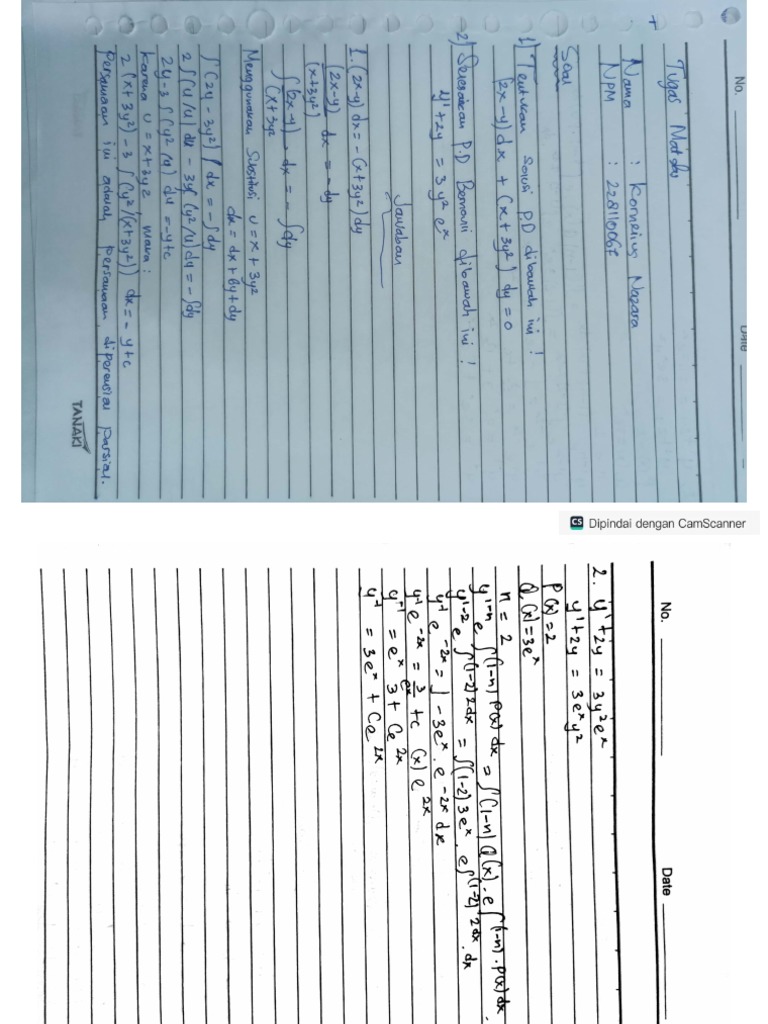 No.
Date
Tugas Matdas
Nama : Kornelius Nazara
NPM : 228110067
Soal
1) Tentukan solusi PD dibawah ini !
(2x-y) dx + (x+3y²) dy = 0
2) Selesaikan P.D Bernouli dibawah ini !
y' + 2y = 3 y² eˣ
Jawaban
1. (2x-y) dx = - (x+3y²) dy
(2x-y)/(x+3y²) dx = - dy
∫ (2x-y)/(x+3y²) dx = - ∫dy
Menggunakan Substitusi u = x + 3y²
du = dx + 6y + dy
∫ (2y - 3y²) / dx = - ∫dy
2 ∫ (u/u) du - 3y ∫ (y²/u) du = - ∫dy
2y - 3 ∫ (y²/u) du = -y+c
karena u = x + 3y², maka :
2 (x+3y²) - 3 ∫ (y²/(x+3y²)) dx = - y+c
Persamaan ini adalah persamaan diperensial parsial.
TANAKI
CS Dipindai dengan CamScanner
No.
Date
2. y' + 2y = 3y²eˣ
y' + 2y = 3eˣy²
P(x) = 2
Q(x) = 3eˣ
n = 2
y¹⁻ⁿ e ∫(1-n) P(x) dx = ∫(1-n) Q(x) . e ∫(1-n) . P(x) dx .
y¹⁻² e ∫(1-2) 2dx = ∫(1-2) 3eˣ . e ∫(1-2) 2dx . dx
y⁻¹ e⁻²ˣ = ∫ -3eˣ . e⁻²ˣ dx
y⁻¹ e⁻²ˣ = 3/eˣ + c (x) e²ˣ
y⁻¹ = eˣ 3 + Ce²ˣ
y⁻¹ = 3eˣ + Ce²ˣ